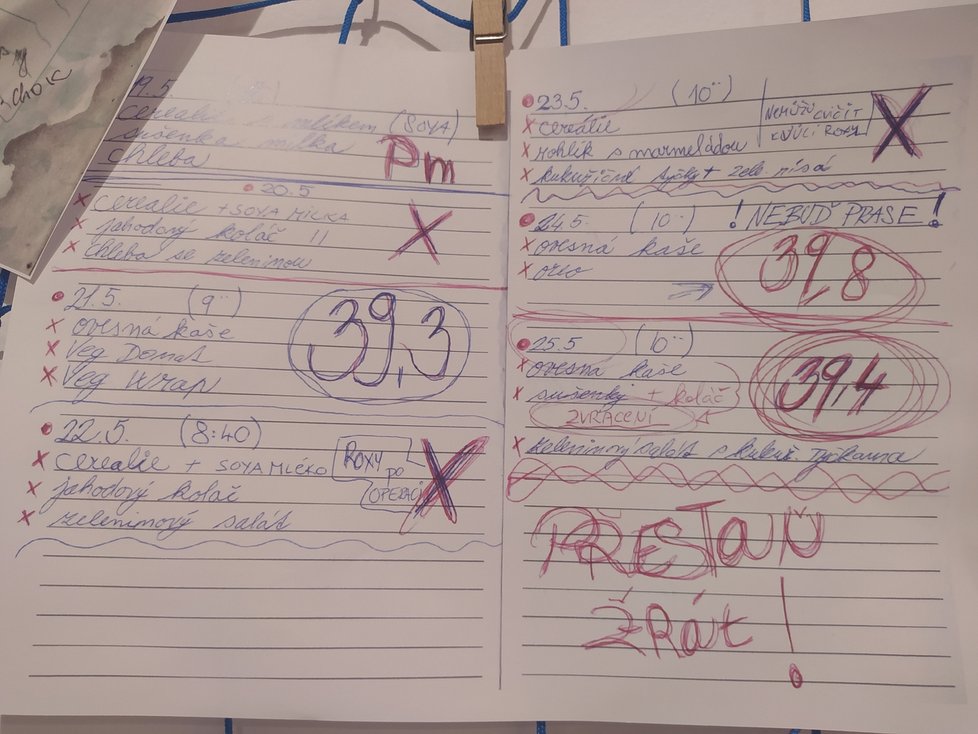 19.5.
cerealie mlíkem (SOYA)
sušenka milka
chleba
Pm
20.5
cerealie + SOYA MLÍKA
jahodový koláč !!
chleba se zeleninou
X
21.5. (9¨)
ovesná kaše
Veg Donat
Veg Wrap
39,3
22.5. (8:40)
cerealie + SOYA MLÉKO
jahodový koláč
zeleninový salát
ROXY po
OPERACI
X
23.5. (10¨)
cereálie
rohlík s marmeládou
kukuřičné tyčky + zele. mísa
NEMŮŽU CVIČIT
KVŮLI ROXY
X
24.5 (10¨) ! NEBUĎ PRASE !
ovesná kaše
oreo
39,8
25.5 (10¨)
ovesná kaše
sušenky + koláč
ZVRÁCENÍ
39,4
zeleninový salát s kukuř.
PŘESTAŇ
ŽRÁT !